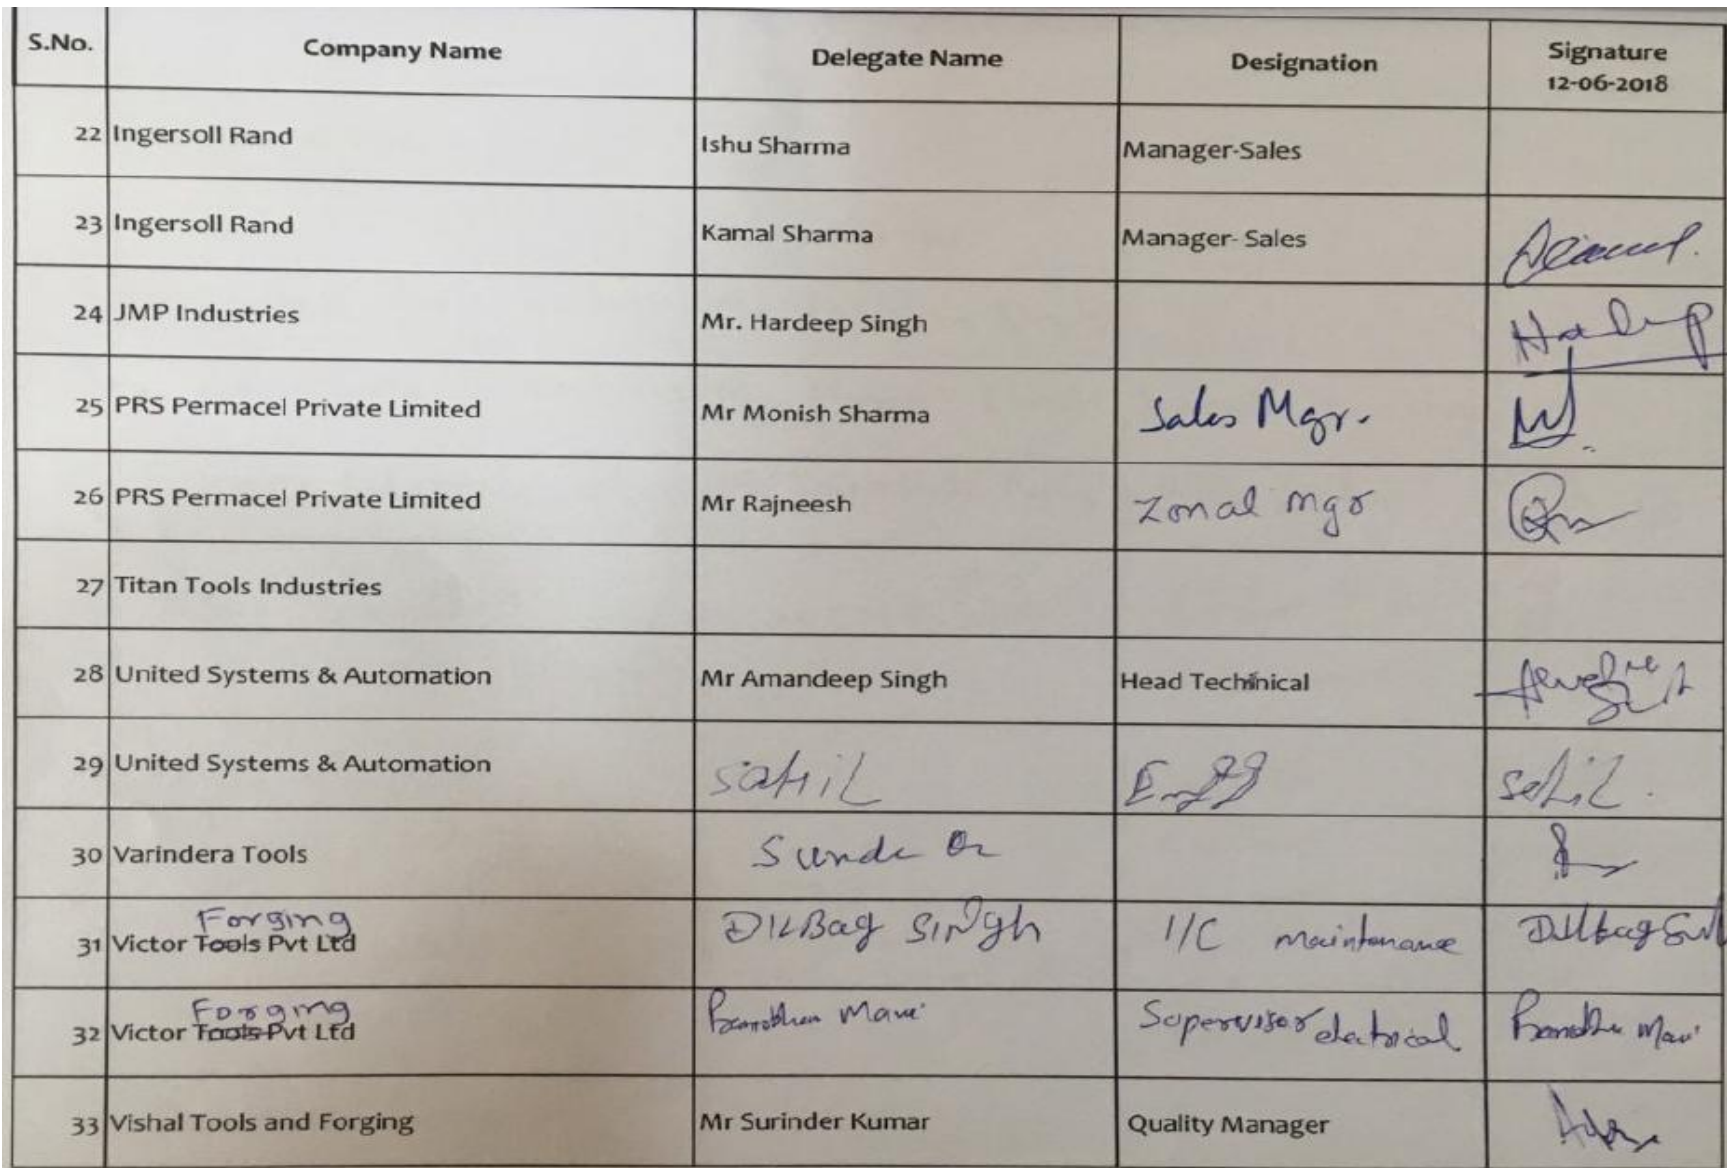 S.No. Company Name Delegate Name Designation Signature
12-06-2018
22 Ingersoll Rand Ishu Sharma Manager-Sales
23 Ingersoll Rand Kamal Sharma Manager- Sales
24 JMP Industries Mr. Hardeep Singh Hardeep
25 PRS Permacel Private Limited Mr Monish Sharma Sales Mgr.
26 PRS Permacel Private Limited Mr Rajneesh Zonal Mgr
27 Titan Tools Industries
28 United Systems & Automation Mr Amandeep Singh Head Techinical
29 United Systems & Automation Sahil Engg Sahil
30 Varindera Tools
Forging
31 Victor Tools Pvt Ltd DILBag SINgh I/C maintenance Dilbag
Forging
32 Victor Tools Pvt Ltd Supervisor electrical
33 Vishal Tools and Forging Mr Surinder Kumar Quality Manager